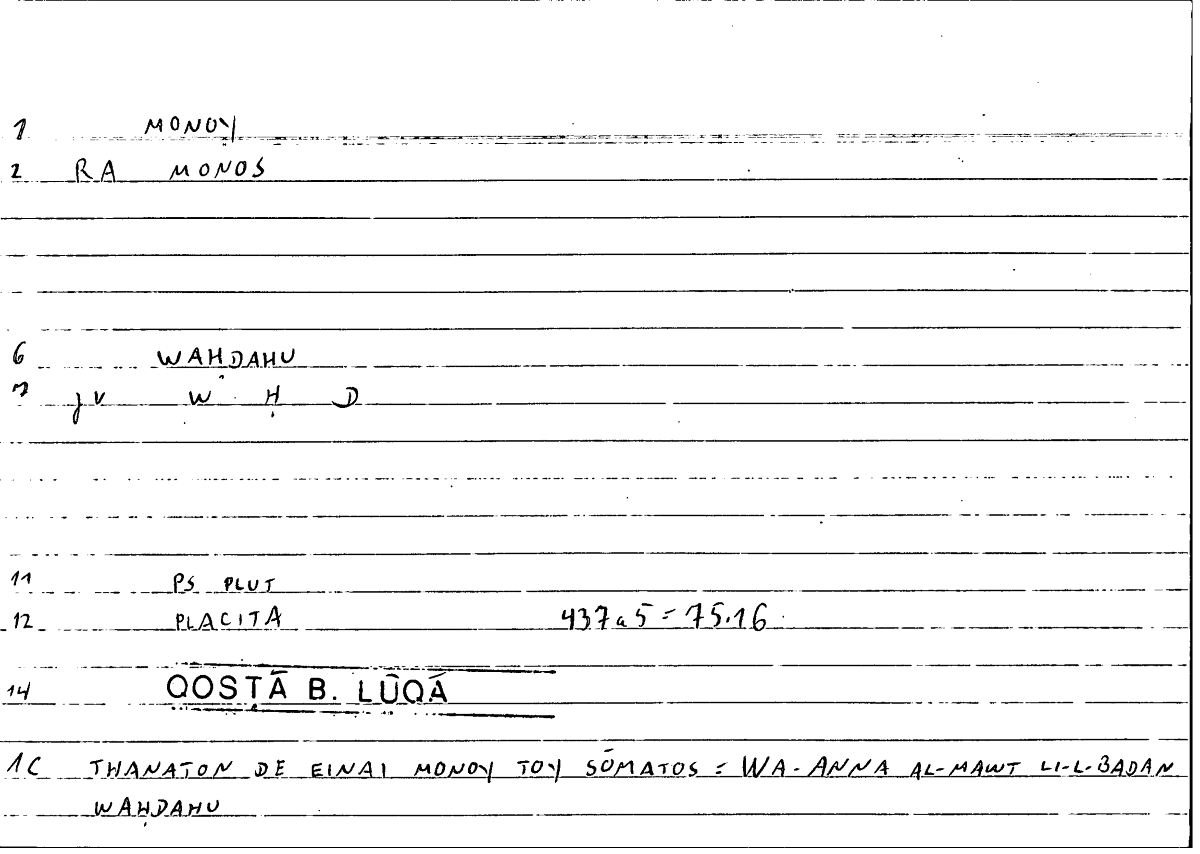 1 MONOY
2 RA MONOS
6 WAḤDAHU
7 jv W Ḥ D
11 PS PLUT
12 PLACITA 437a5 = 75.16
14 QOSṬĀ B. LŪQĀ
1C THANATON DE EINAI MONOY TOY SŌMATOS = WA-ANNA AL-MAWT LI-L-BADAN
WAḤDAHU